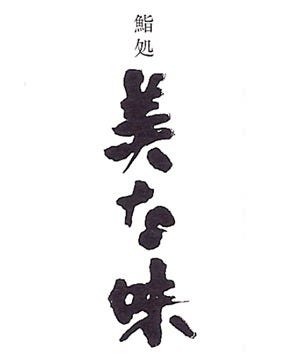 鮨処
美な味